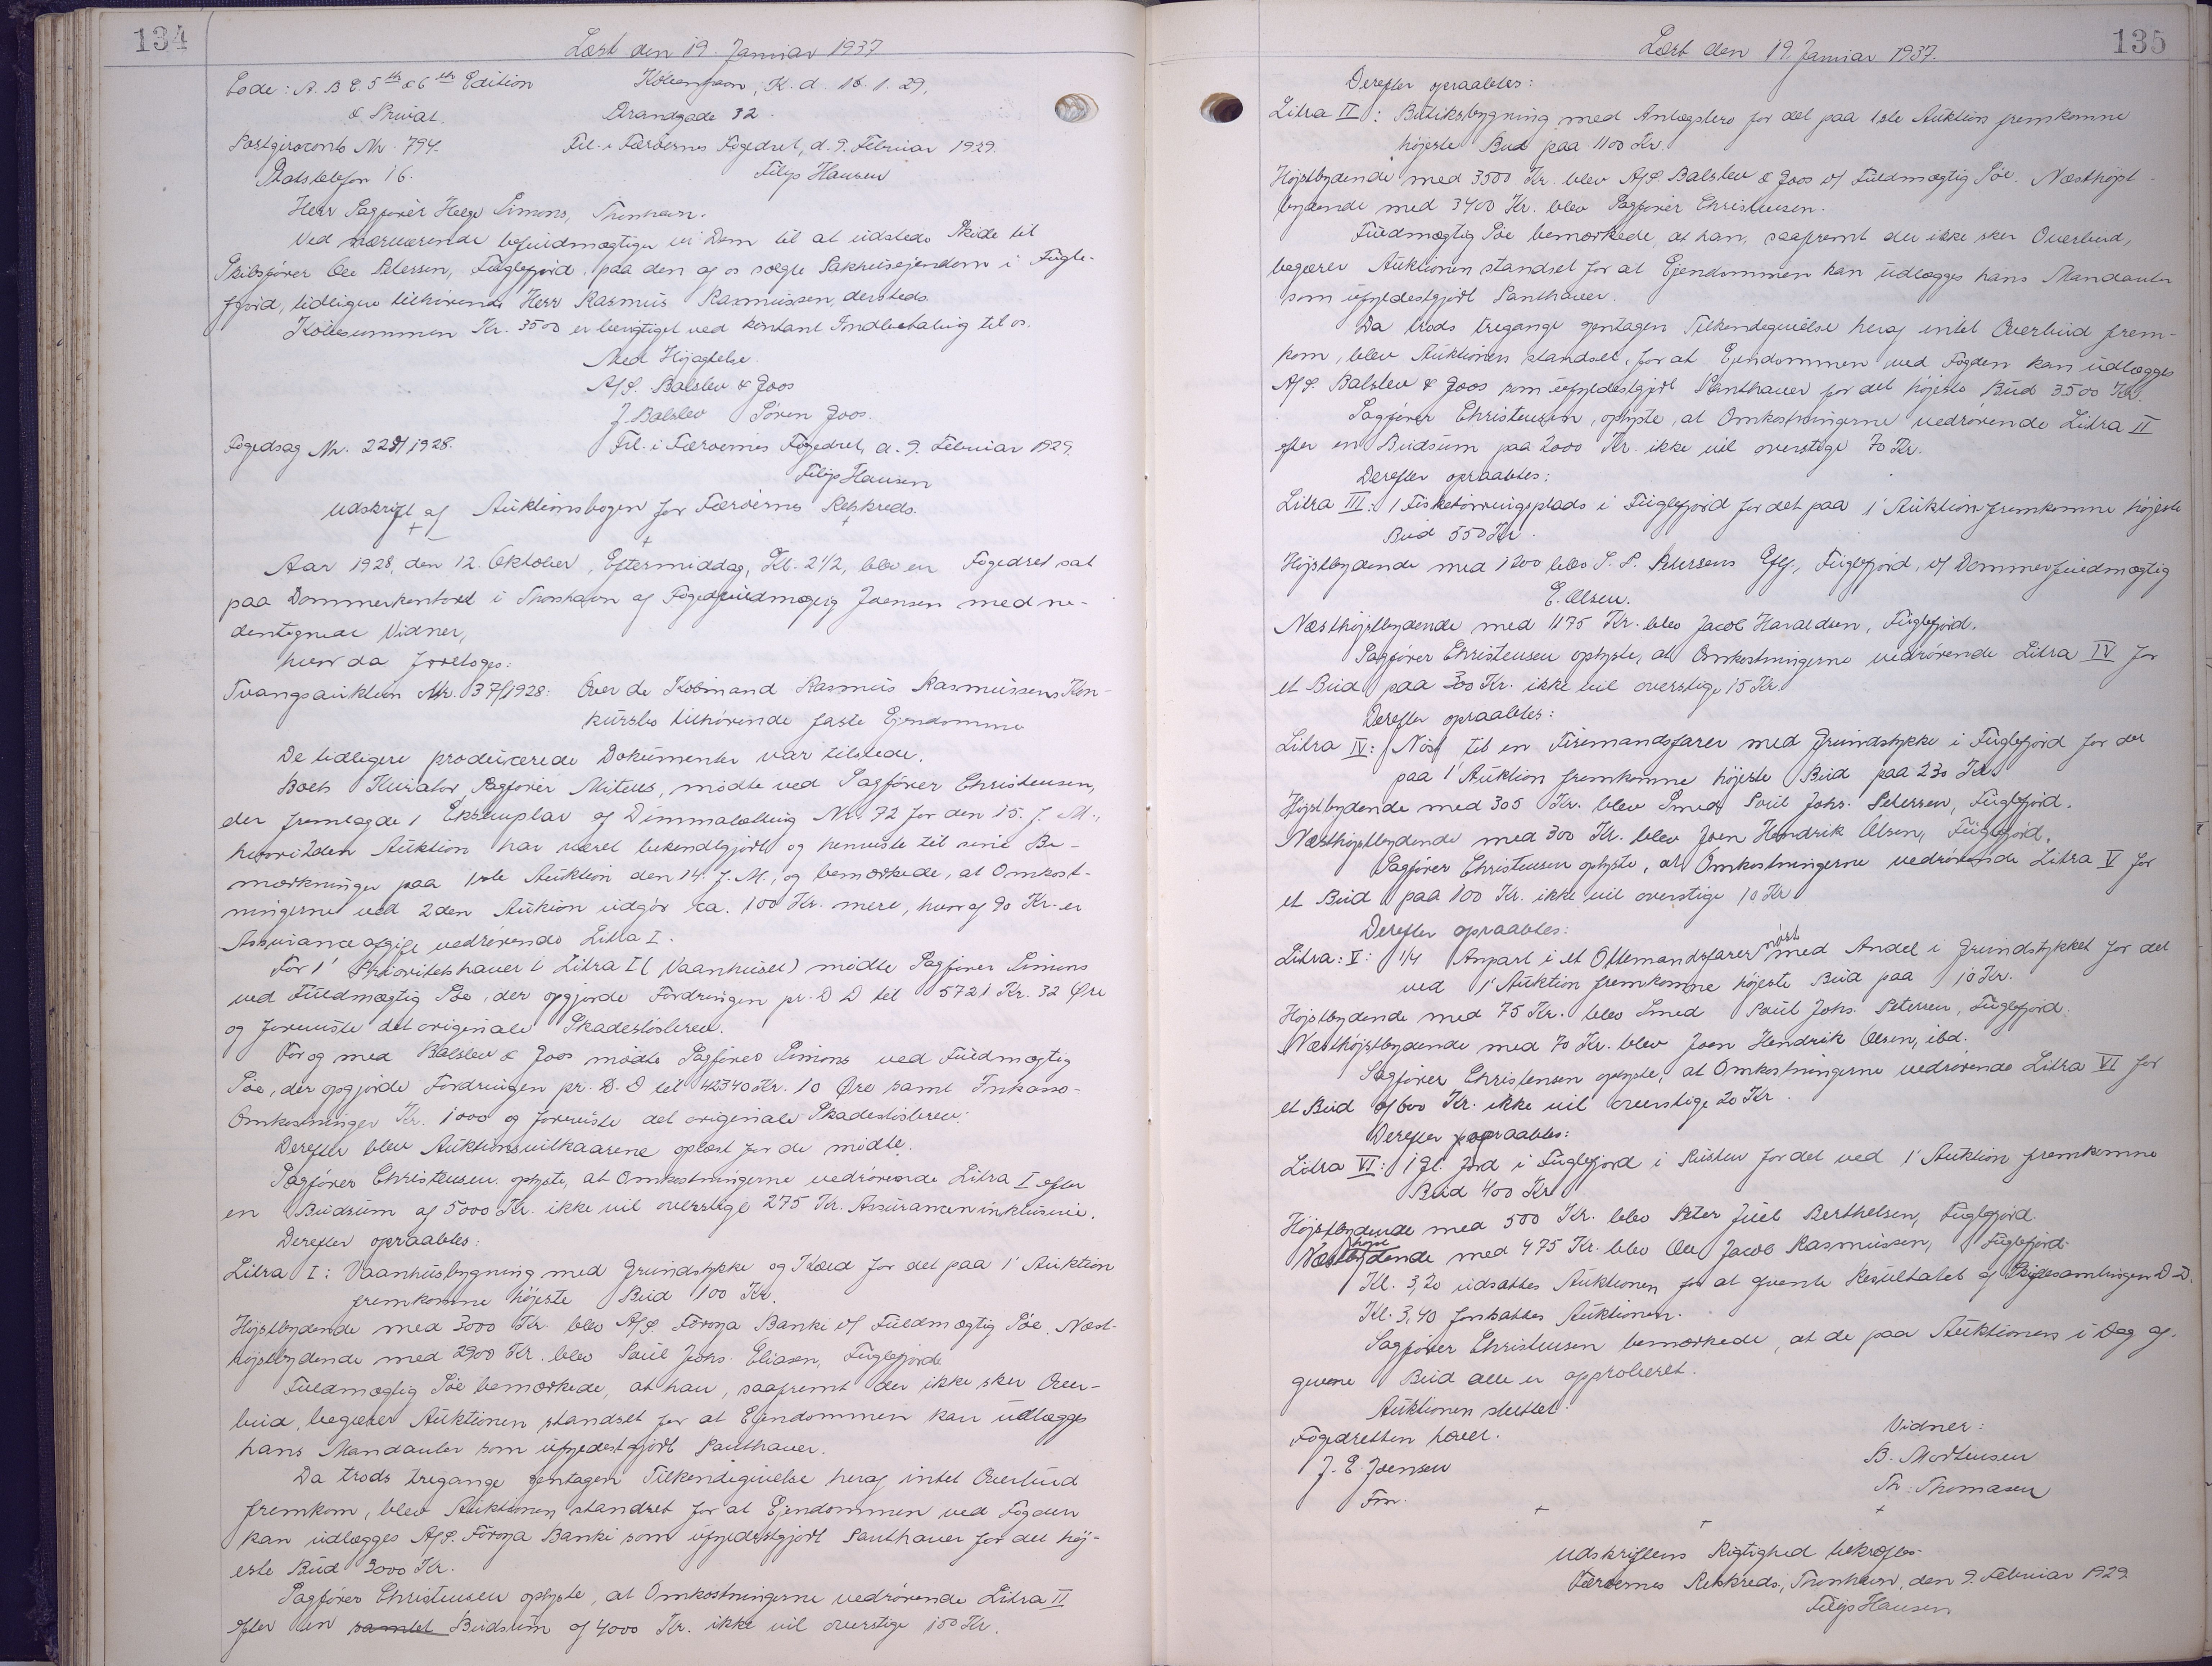 134
Læst den 19. Januar 1937
Code: A.B.C. 5th & 6th Edition København, K. d. 16.1.29.
& Privat. Brandgade 32.
Postgiroconto Nr. 794. Frl. i Færøernes Fogedret, d. 9. Februar 1929.
Statstelefon 16. Filip Hansen
Herr Sagfører Helge Simons, Thorshavn.
Ved nærværende befuldmægtiger vi Dem til at udstede Skøde til
Skibsfører Ole Petersen, Fuglefjord, paa den af os solgte Pakhusejendom i Fugle-
fjord, tidligere tilhørende Herr Rasmus Rasmussen, dersteds.
Købesummen Kr. 3500 er berigtiget ved kontant Indbetaling til os.
Med Højagtelse.
A/S. Balslev & Joos
J. Balslev Søren Joos.
Fogedsag Nr. 228/1928. Frl. i Færøernes Fogedret, d. 9. Februar 1929.
Filip Hansen
Udskrift af Auktionsbogen for Færøernes Retskreds.
Aar 1928, den 12. Oktober, Eftermiddag, Kl. 2 1/2, blev en Fogedret sat
paa Dommerkontoret i Thorshavn af Fogedfuldmægtig Joensen med ne-
dentegnede Vidner,
hvor da foretoges:
Tvangsauktion Nr. 37/1928: Over de Købmand Rasmus Rasmussens Kon-
kursbo tilhørende faste Ejendomme
De tidligere producerede Dokumenter var tilstede.
Boets Kurator, Sagfører Mitens, mødte ved Sagfører Christensen,
der fremlagde 1 Eksemplar af Dimmalætting Nr. 72 for den 15. f. M.,
hvori 2den Auktion har været bekendtgjort og henviste til sine Be-
mærkninger paa 1ste Auktion den 14. f. M., og bemærkede, at Omkost-
ningerne ved 2den Auktion udgør ca. 100 Kr. mere, hvoraf 90 Kr. er
Assuranceafgift vedrørende Litra I.
For 1' Prioritetshaver i Litra I (Vaanhuset) mødte Sagfører Simons
ved Fuldmægtig Poe, der opgjorde Fordringen pr. D D til 5721 Kr. 32 Øre
og foreviste det originale Skadesløsbrev.
For og med Balslev & Joos mødte Sagfører Simons ved Fuldmægtig
Poe, der opgjorde Fordringen pr. D. D til 42340 Kr. 10 Øre samt Inkasso-
Omkostninger Kr. 1000 og foreviste det originale Skadesløsbrev.
Derefter blev Auktionsvilkaarene oplæst for de mødte.
Sagfører Christensen oplyste, at Omkostningerne vedrørende Litra I efter
en Budsum af 5000 Kr. ikke vil overstige 275 Kr. Assurancen inklusive.
Derefter opraabtes:
Litra I: Vaanhusbygning med Grundstykke og Kæld for det paa 1' Auktion
fremkomne højeste Bud 100 Kr.
Højstbydende med 3000 Kr. blev A/S. Føroya Banki v/ Fuldmægtig Poe. Næst-
højstbydende med 2900 Kr. blev Poul Johs. Eliasen, Fuglefjord
Fuldmægtig Poe bemærkede, at han, saafremt der ikke sker Over-
bud, begærer Auktionen standset for at Ejendommen kan udlægges
hans Mandanter som ufyldestgjort Panthaver.
Da trods tregange gentagen Tilkendegivelse heraf intet Overbud
fremkom, blev Auktionen standset for at Ejendommen ved Fogden
kan udlægges A/S. Føroya Banki som ufyldestgjort Panthaver for det høj-
este Bud 3000 Kr.
Sagfører Christensen oplyste, at Omkostningerne vedrørende Litra II
efter en samlet Budsum af 4000 Kr. ikke vil overstige 150 Kr.
135
Læst den 19. Januar 1937.
Derefter opraabtes:
Litra II: Butiksbygning med Anlægsbro for det paa 1ste Auktion fremkomne
højeste Bud paa 1100 Kr.
Højstbydende med 3500 Kr. blev A/S. Balslev & Joos v/ Fuldmægtig Poe. Næsthøjst-
bydende med 3400 Kr. blev Sagfører Christensen.
Fuldmægtig Poe bemærkede at han, saafremt der ikke sker Overbud,
begærer Auktionen standset for at Ejendommen kan udlægges hans Mandanter
som ufyldestgjort Panthaver.
Da trods tregange gentagen Tilkendegivelse heraf intet Overbud frem-
kom, blev Auktionen standset, for at Ejendommen ved Fogden kan udlægges
A/S. Balslev & Joos som ufyldestgjort Panthaver for det højeste Bud 3500 Kr.
Sagfører Christensen oplyste, at Omkostningerne vedrørende Litra II
efter en Budsum paa 2000 Kr. ikke vil overstige 70 Kr.
Derefter opraabtes:
Litra III: 1 Fisketørringsplads i Fuglefjord for det paa 1' Auktion fremkomne højeste
Bud 550 Kr.
Højstbydende med 1200 blev S. P. Petersens Eftf., Fuglefjord, v/ Dommerfuldmægtig
E. Olsen.
Næsthøjstbydende med 1175 Kr. blev Jacob Haraldsen, Fuglefjord.
Sagfører Christensen oplyste, at Omkostningerne vedrørende Litra IV for
et Bud paa 300 Kr. ikke vil overstige 15 Kr.
Derefter opraabtes:
Litra IV: 1 Nøst til en Firemandsfarer med Grundstykke i Fuglefjord for det
paa 1' Auktion fremkomne højeste Bud paa 230 Kr.
Højstbydende med 305 Kr. blev Smed Poul Johs. Petersen, Fuglefjord.
Næsthøjstbydende med 300 Kr. blev Joen Hendrik Olsen, Fuglefjord.
Sagfører Christensen oplyste, at Omkostningerne vedrørende Litra V for
et Bud paa 100 Kr. ikke vil overstige 10 Kr.
Derefter opraabtes:
Litra: V: 1/4 Anpart i et Ottemandsfarer nøst med Andel i Grundstykket for det
ved 1' Auktion fremkomne højeste Bud paa 10 Kr.
Højstbydende med 75 Kr. blev Smed Poul Johs. Petersen, Fuglefjord.
Næsthøjstbydende med 70 Kr. blev Joen Hendrik Olsen, ibd.
Sagfører Christensen oplyste, at Omkostningerne vedrørende Litra VI for
et Bud af 600 Kr. ikke vil overstige 20 Kr.
Derefter opraabtes:
Litra VI: 1 Gl. Jord i Fuglefjord i for det ved 1' Auktion fremkomne
Bud 400 Kr.
Højstbydende med 500 Kr. blev Peter Juel Berthelsen, Fuglefjord.
Næsthøjstbydende med 475 Kr. blev Ole Jacob Rasmussen, Fuglefjord.
Kl. 3,20 udsattes Auktionen for at gvente Resultatet af Skiftesamlingen D. D.
Kl. 3,40 fortsattes Auktionen.
Sagfører Christensen bemærkede, at de paa Auktionen i Dag af-
givne Bud alle er approberet.
Auktionen sluttet.
Fogedretten hævet. Vidner:
J. E. Joensen B. Mortensen
Fm. Th. Thomasen
Udskriftens Rigtighed bekræftes
Færøernes Retskreds, Thorshavn, den 9. Februar 1929.
Filip Hansen